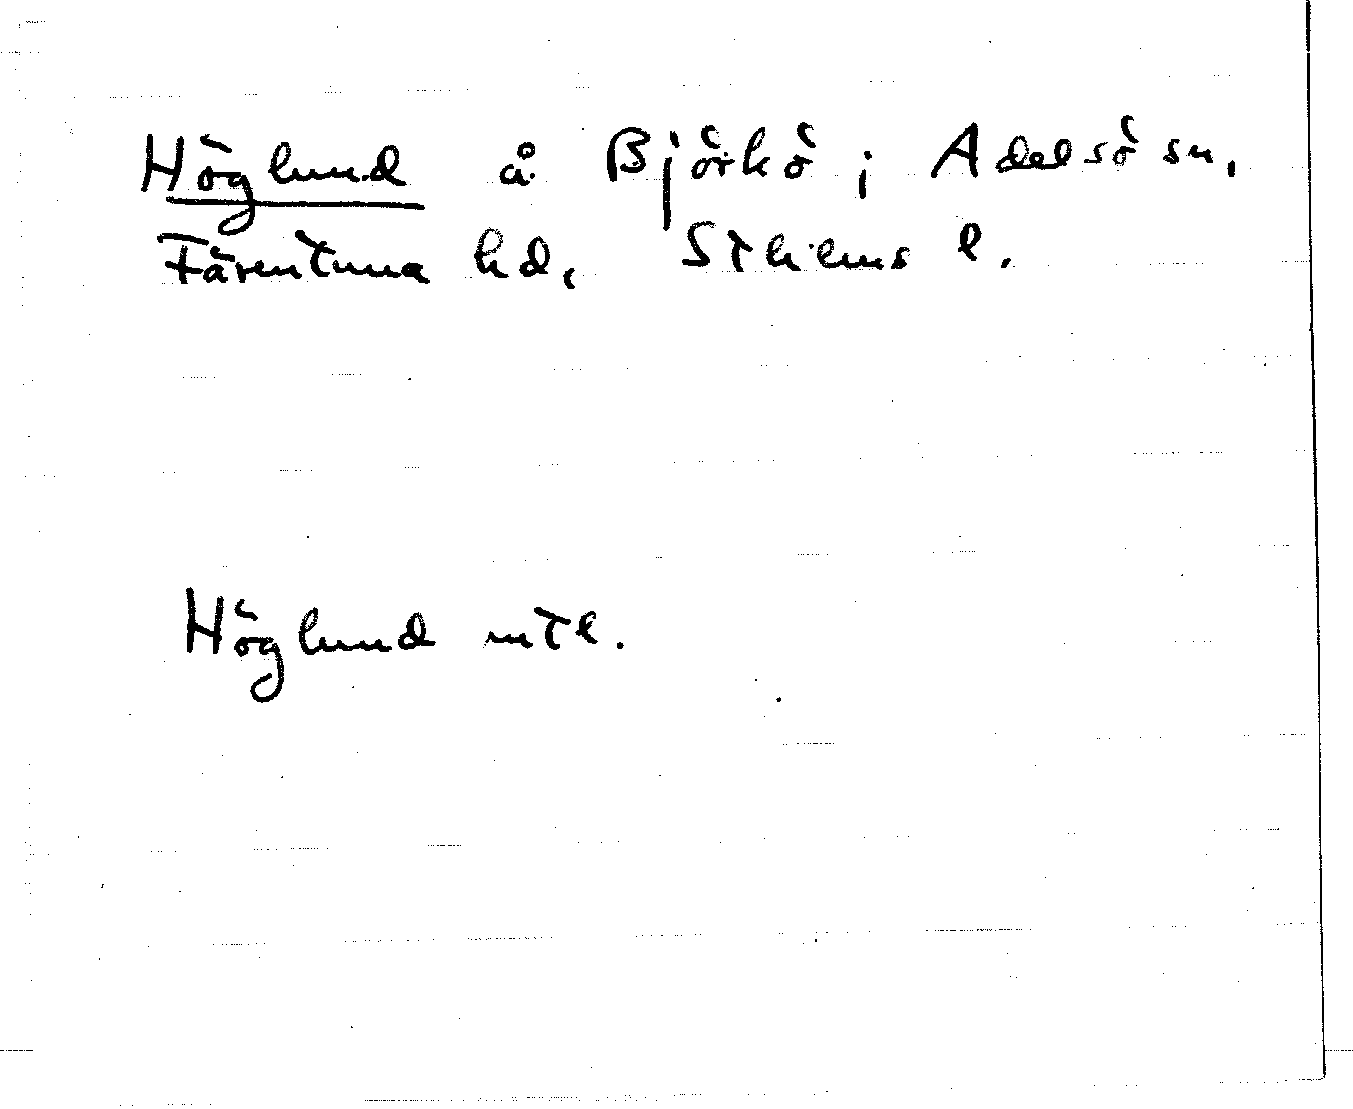 Höglund å Björkö i Adelsö sn,
Färentuna hd, Sthlms l.
Höglund mtl.